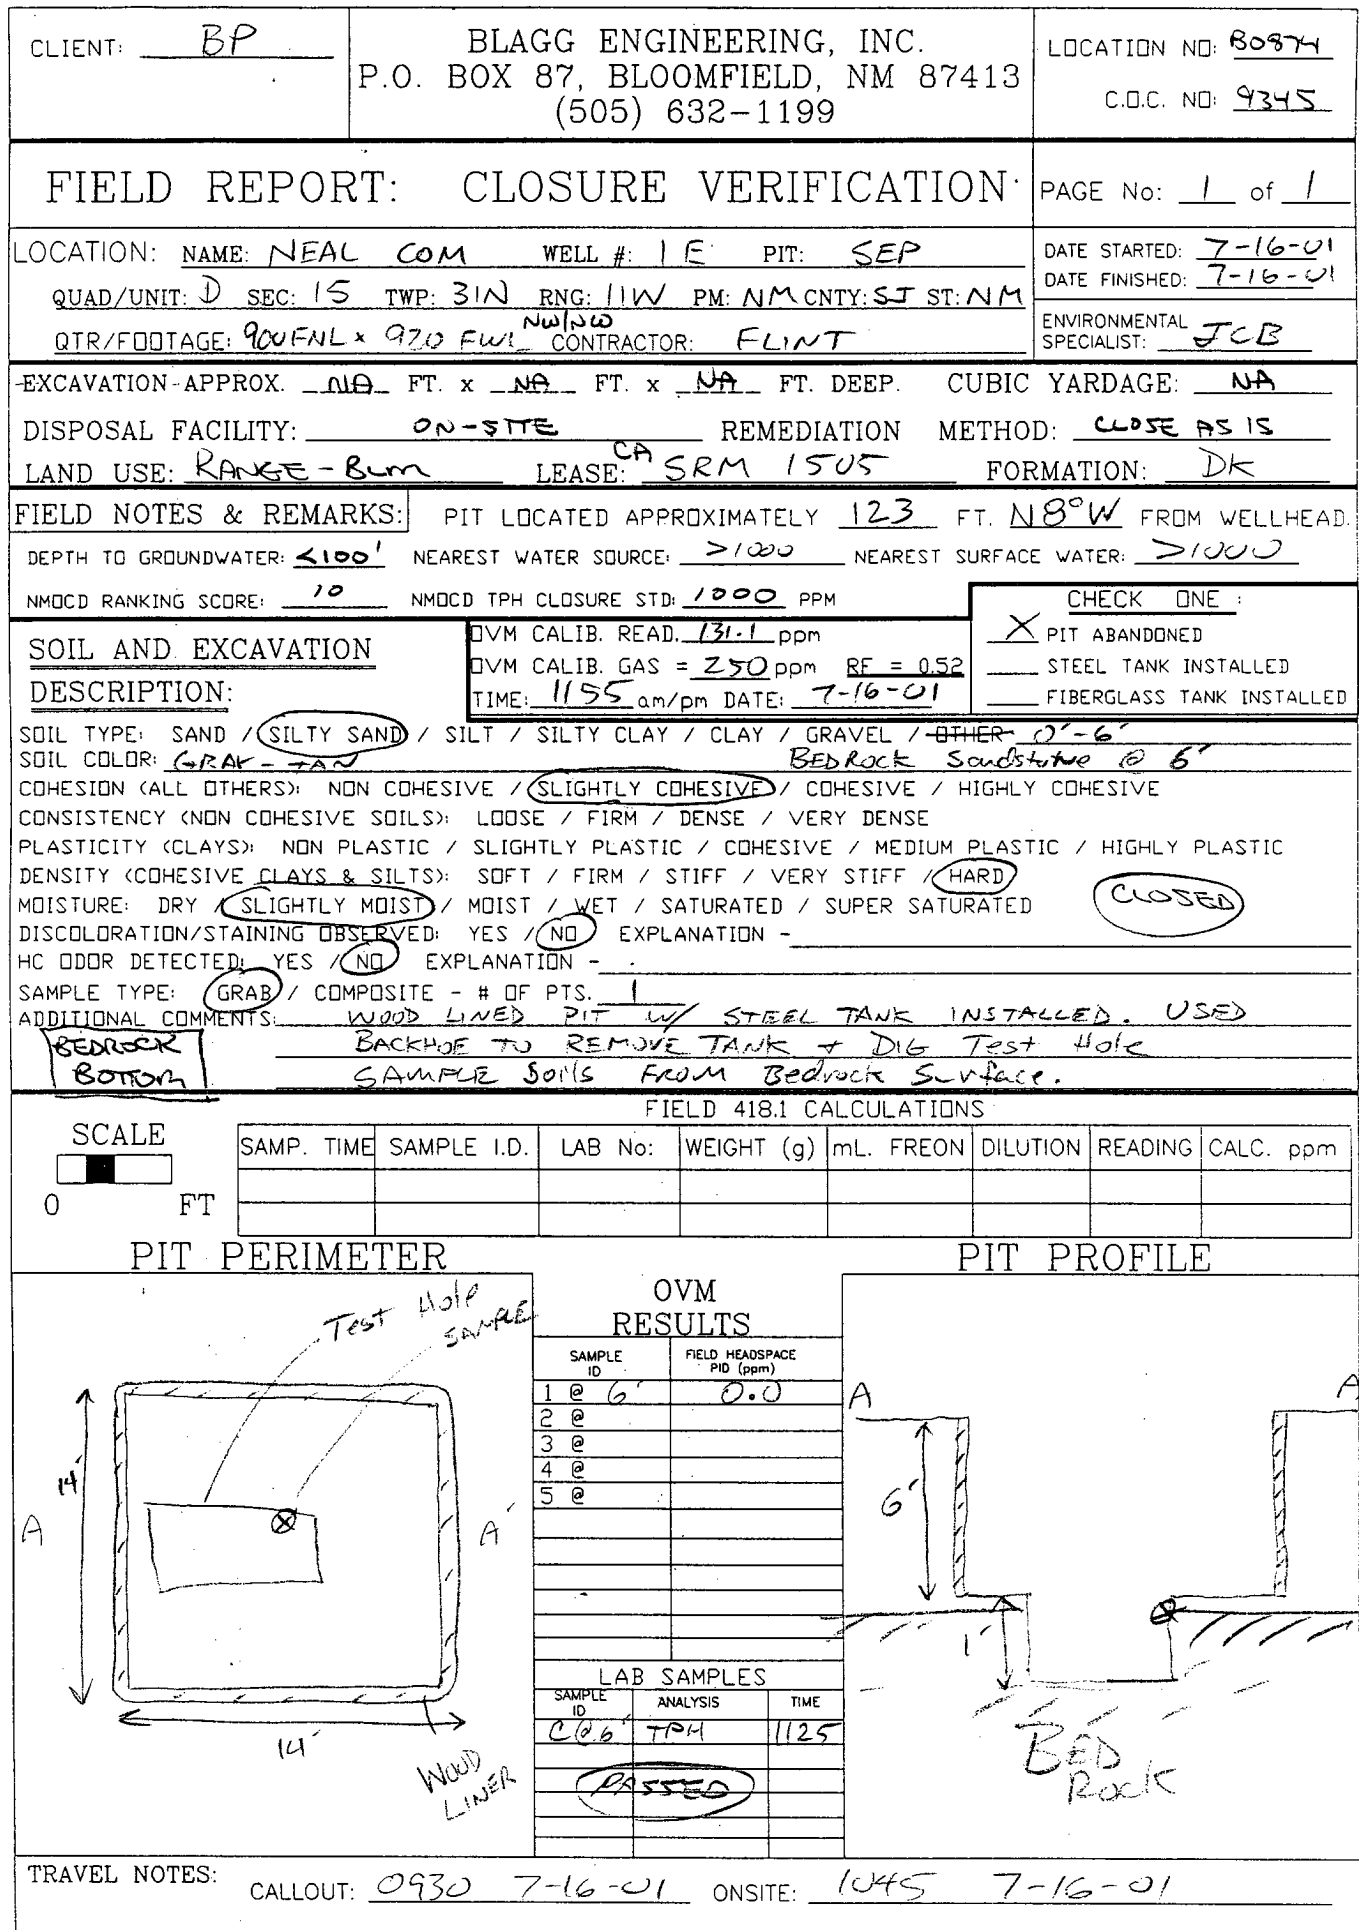 CLIENT: BP
BLAGG ENGINEERING, INC.
P.O. BOX 87, BLOOMFIELD, NM 87413
(505) 632-1199
LOCATION NO: B0874
C.O.C. NO: 9345
FIELD REPORT: CLOSURE VERIFICATION
PAGE No: 1 of 1
LOCATION: NAME: NEAL COM WELL #: 1E PIT: SEP
QUAD/UNIT: D SEC: 15 TWP: 31N RNG: 11W PM: NM CNTY: SJ ST: NM
QTR/FOOTAGE: 900 FNL x 920 FWL NW/NW CONTRACTOR: FLINT
DATE STARTED: 7-16-01
DATE FINISHED: 7-16-01
ENVIRONMENTAL
SPECIALIST: JCB
EXCAVATION APPROX. NA FT. x NA FT. x NA FT. DEEP. CUBIC YARDAGE: NA
DISPOSAL FACILITY: ON-SITE REMEDIATION METHOD: CLOSE AS IS
LAND USE: RANGE - BLM LEASE: CA SRM 1505 FORMATION: DK
FIELD NOTES & REMARKS: PIT LOCATED APPROXIMATELY 123 FT. N8°W FROM WELLHEAD.
DEPTH TO GROUNDWATER: <100' NEAREST WATER SOURCE: >1000 NEAREST SURFACE WATER: >1000
NMOCD RANKING SCORE: 10 NMOCD TPH CLOSURE STD: 1000 PPM
CHECK ONE :
X PIT ABANDONED
STEEL TANK INSTALLED
FIBERGLASS TANK INSTALLED
SOIL AND EXCAVATION
DESCRIPTION:
OVM CALIB. READ. 131.1 ppm
OVM CALIB. GAS = 250 ppm RF = 0.52
TIME: 1155 am/pm DATE: 7-16-01
SOIL TYPE: SAND / SILTY SAND / SILT / SILTY CLAY / CLAY / GRAVEL / OTHER 0'-6'
SOIL COLOR: GRAY - TAN BEDRock Sandstone @ 6'
COHESION (ALL OTHERS): NON COHESIVE / SLIGHTLY COHESIVE / COHESIVE / HIGHLY COHESIVE
CONSISTENCY (NON COHESIVE SOILS): LOOSE / FIRM / DENSE / VERY DENSE
PLASTICITY (CLAYS): NON PLASTIC / SLIGHTLY PLASTIC / COHESIVE / MEDIUM PLASTIC / HIGHLY PLASTIC
DENSITY (COHESIVE CLAYS & SILTS): SOFT / FIRM / STIFF / VERY STIFF / HARD
MOISTURE: DRY / SLIGHTLY MOIST / MOIST / WET / SATURATED / SUPER SATURATED
CLOSED
DISCOLORATION/STAINING OBSERVED: YES / NO EXPLANATION -
HC ODOR DETECTED: YES / NO EXPLANATION -
SAMPLE TYPE: GRAB / COMPOSITE - # OF PTS. 1
ADDITIONAL COMMENTS: WOOD LINED PIT W/ STEEL TANK INSTALLED. USED
BACKHOE TO REMOVE TANK + DIG Test Hole
SAMPLE Soils FROM Bedrock Surface.
BEDROCK
BOTTOM
FIELD 418.1 CALCULATIONS
SCALE
0 FT
SAMP. TIME SAMPLE I.D. LAB No: WEIGHT (g) mL. FREON DILUTION READING CALC. ppm
PIT PERIMETER
PIT PROFILE
Test Hole
SAMPLE
14'
A
A'
14'
WOOD
LINER
OVM
RESULTS
SAMPLE
ID
FIELD HEADSPACE
PID (ppm)
1 @ 6' 0.0
2 @
3 @
4 @
5 @
LAB SAMPLES
SAMPLE
ID
ANALYSIS
TIME
C@6' TPH 1125
PASSED
A
A
6'
1'
BED
Rock
TRAVEL NOTES:
CALLOUT: 0930 7-16-01 ONSITE: 1045 7-16-01